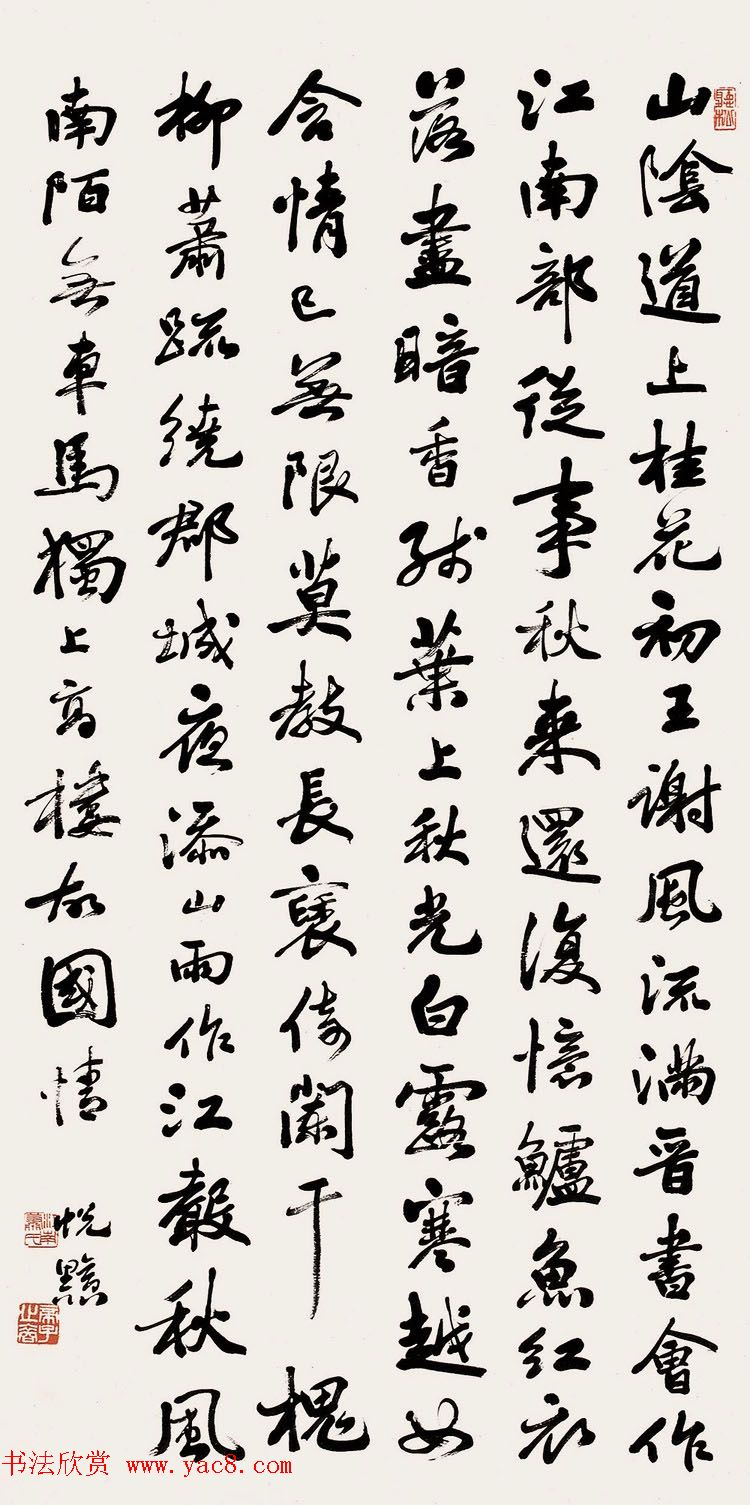 山陰道上桂花初王謝風流滿晉書會作
江南部從事秋来還復憶鱸魚紅衣
落盡暗香殘葉上秋光白露寒越女
含情已無限莫教長褎倚闌干槐
柳蕭疏繞郡城夜添山雨作江聲秋風
南陌無車馬獨上高樓故國情
蛻黯
江南蕭氏
书法欣赏 www.yac8.com